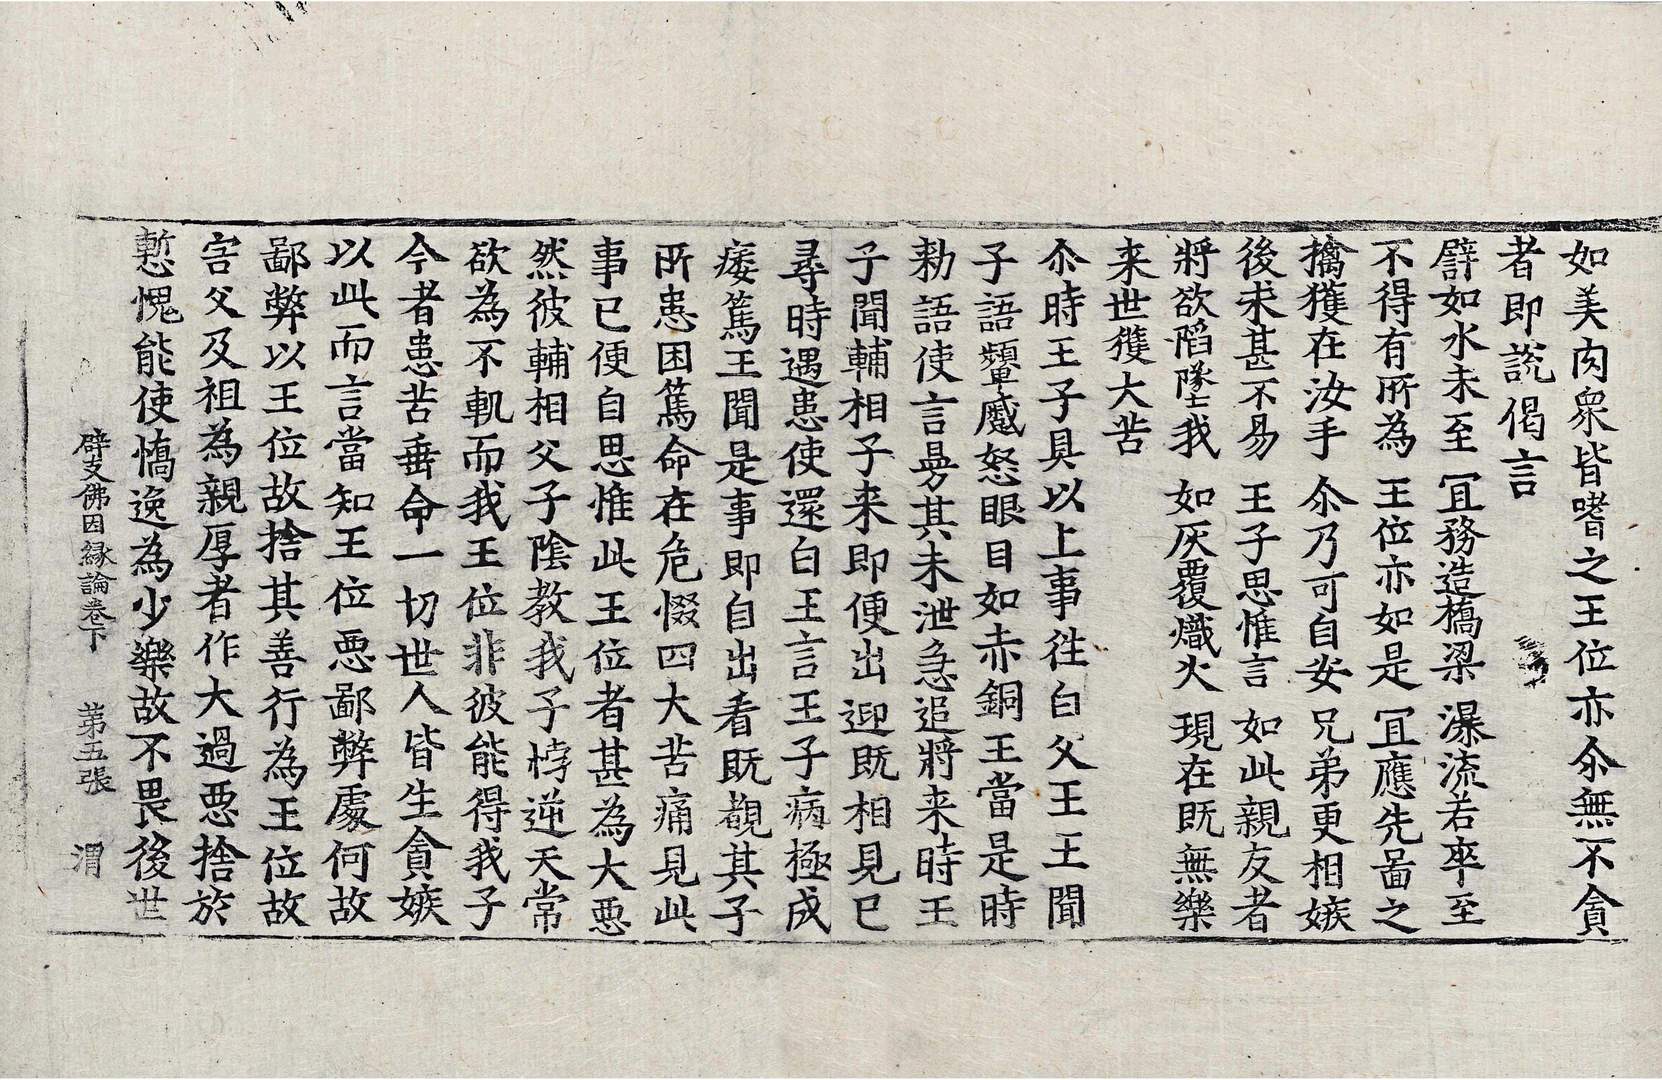 如美肉衆皆嗜之王位亦尒無不貪
者即說偈言
譬如水未至　冝務造橋梁　瀑流若卒至
不得有所為　王位亦如是　冝應先啚之
擒獲在汝手　尒乃可自安　兄弟更相嫉
後求甚不易　王子思惟言　如此親友者
將欲陷墜我　如灰覆熾火　現在既無樂
来世獲大苦
尒時王子具以上事往白父王王聞
子語顰蹙怒眼目如赤銅王當是時
勑語使言曼其未泄急追將来時王
子聞輔相子来即便出迎既相見已
尋時遇患使還白王言王子病極成
痿篤王聞是事即自出看既覩其子
所患困篤命在危惙四大苦痛見此
事已便自思惟此王位者甚為大惡
然彼輔相父子陰教我子悖逆天常
欲為不軌而我王位非彼能得我子
今者患苦垂命一切世人皆生貪嫉
以此而言當知王位惡鄙弊處何故
鄙弊以王位故捨其善行為王位故
害父及祖為親厚者作大過惡捨於
慙愧能使憍逸為少樂故不畏後世
辟支佛因緣論卷下　第五張　渭